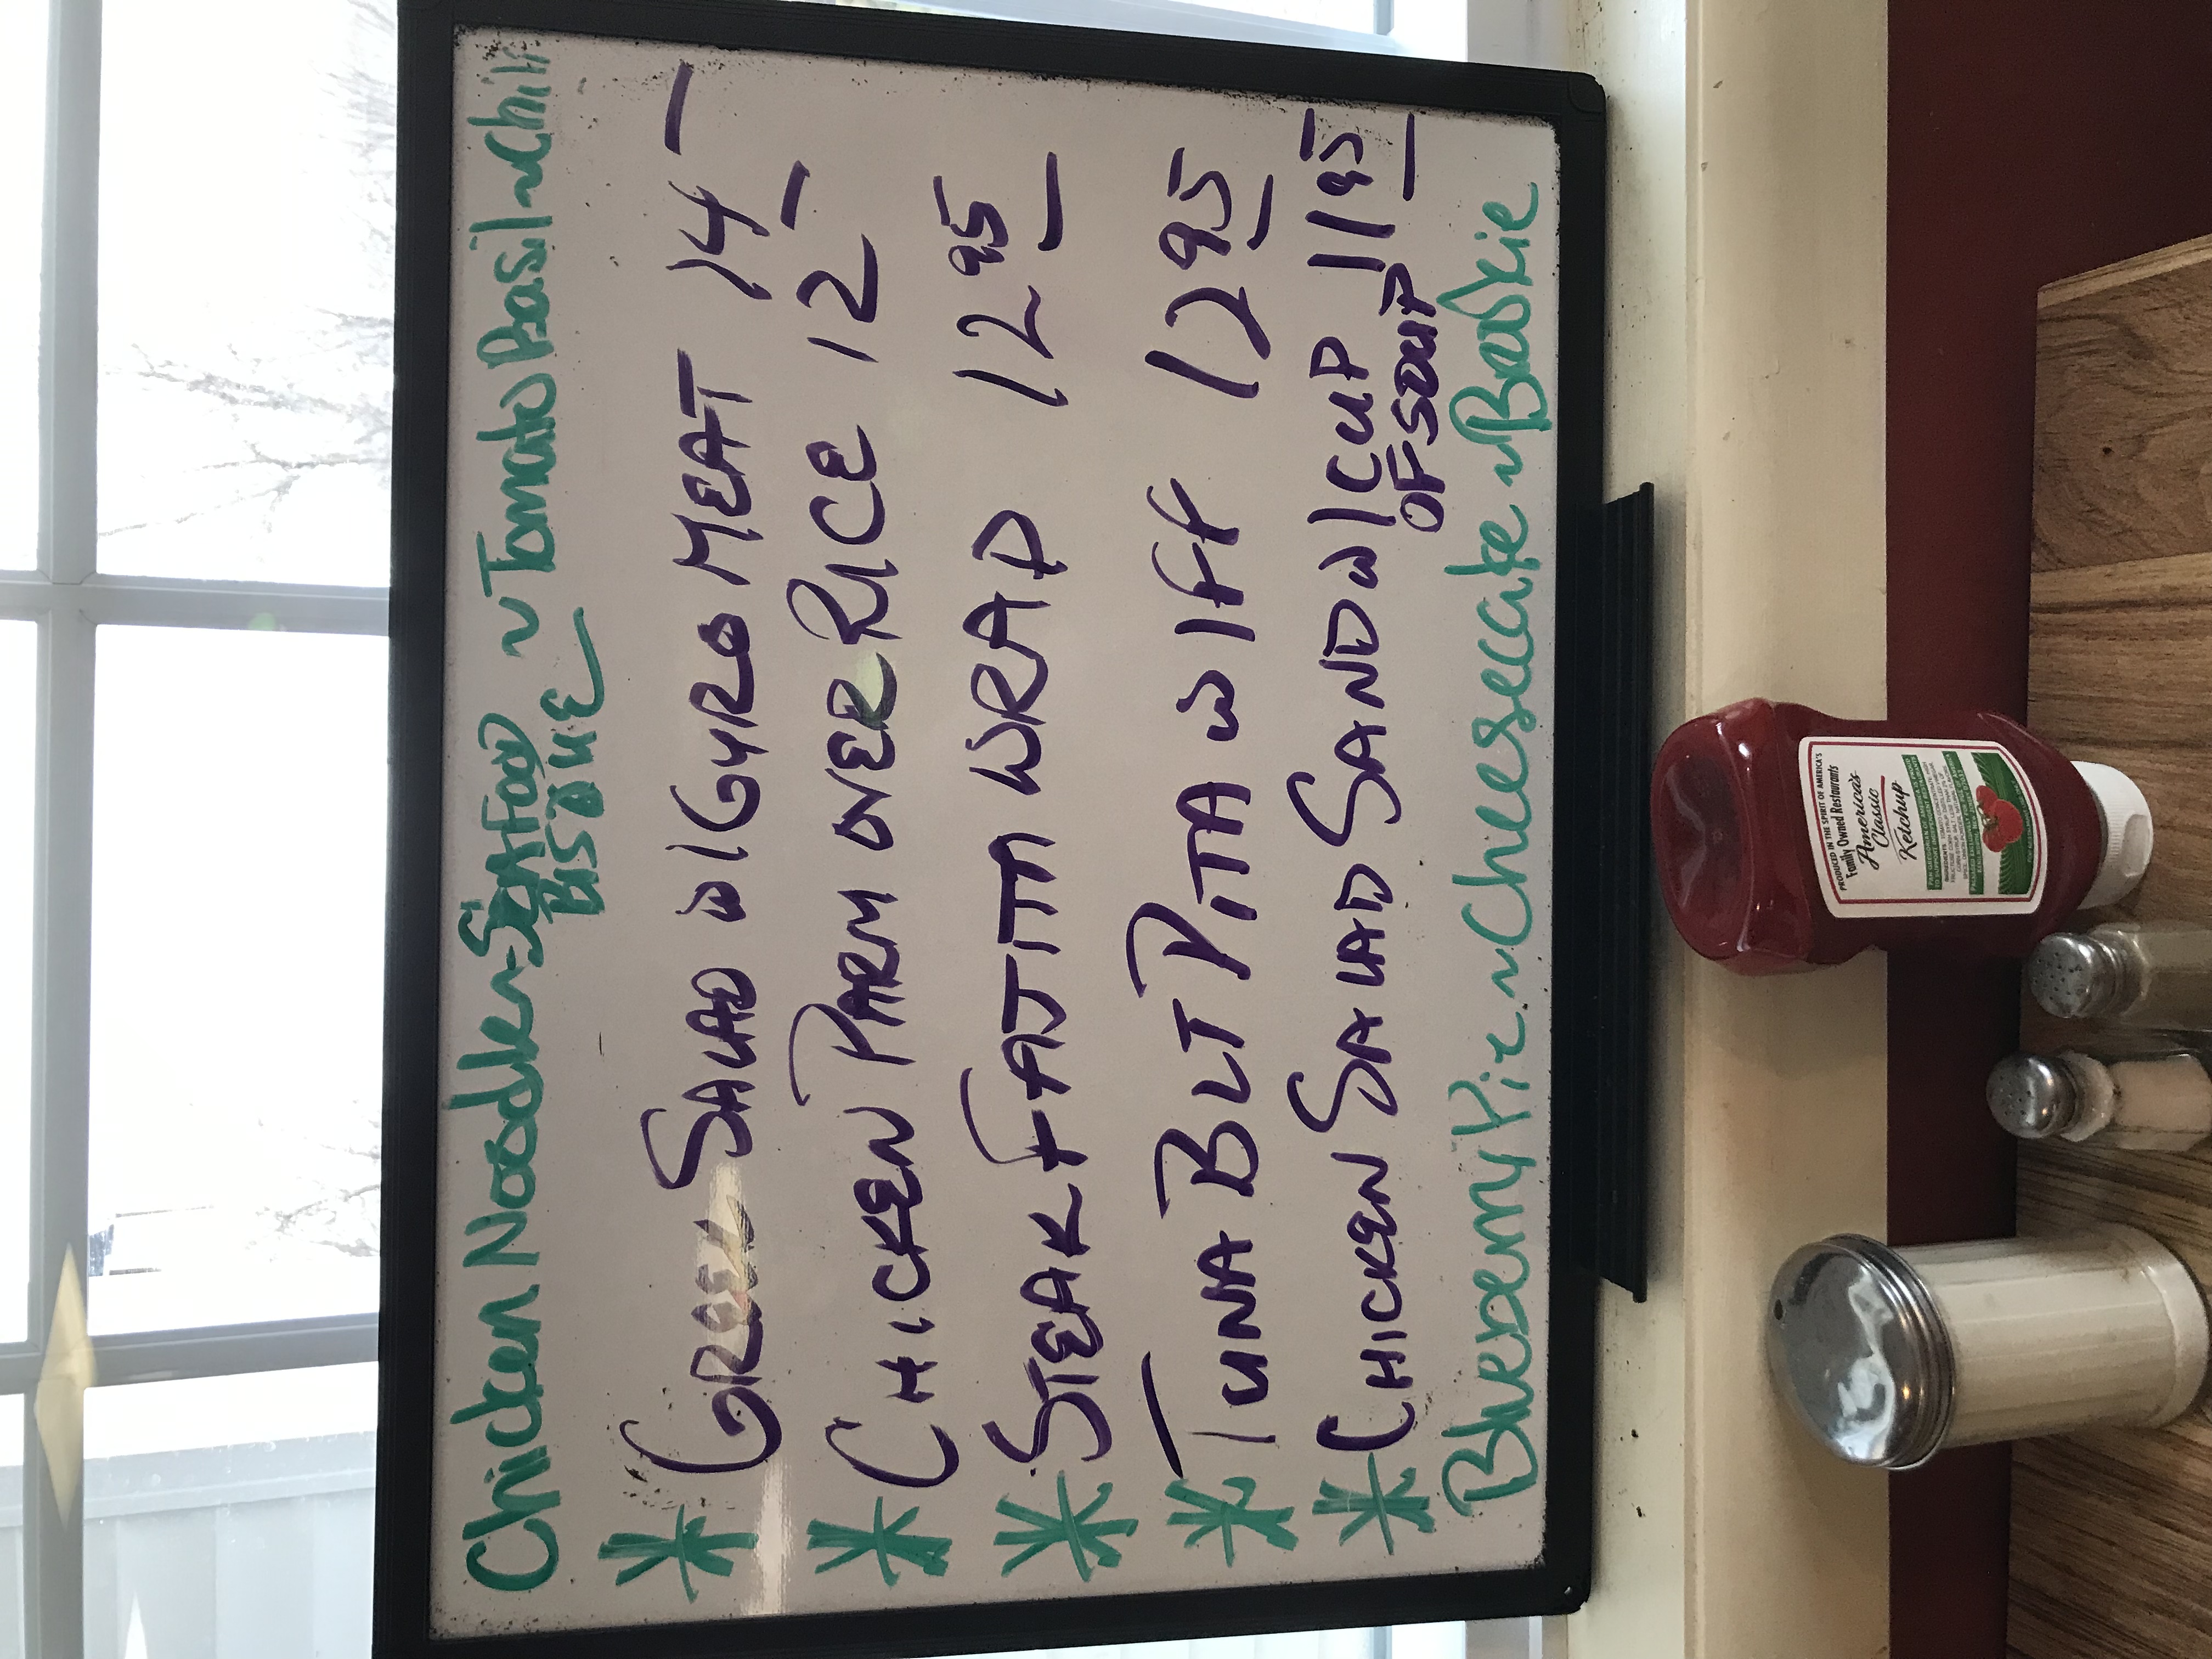 Chicken Noodle ~ SEAFOOD ~ Tomato Basil ~ Chili
BISQUE
* GREEK SALAD W/ GYRO MEAT 14 –
* CHICKEN PARM OVER RICE 12 –
* STEAK FAJITA WRAP 12 95
* TUNA BLT PITA W/ FF 12 95
* CHICKEN SALAD SAND W/ CUP 11 95
OF SOUP
Blueberry Pie ~ Cheesecake ~
PRODUCED IN THE SPIRIT OF AMERICA'S
Family Owned Restaurants
America's
Classic
Ketchup